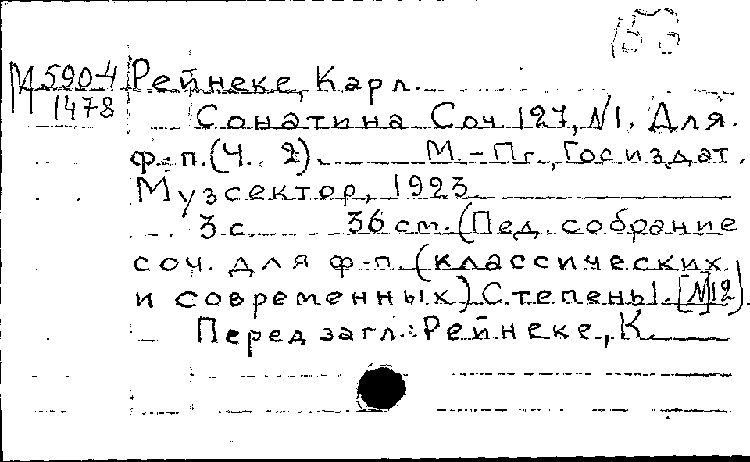 153
М 590-4 Рейнеке, Карл.
1478
Сонатина Соч. 127, №1. Для
ф.-п. (Ч. 2). М.-Пг., Госиздат.
Музсектор, 1923.
3 с. 36 см. (Пед. собрание
соч. для ф.-п. (классических
и современных) Степень I. [№12]).
Перед загл.: Рейнеке, К.